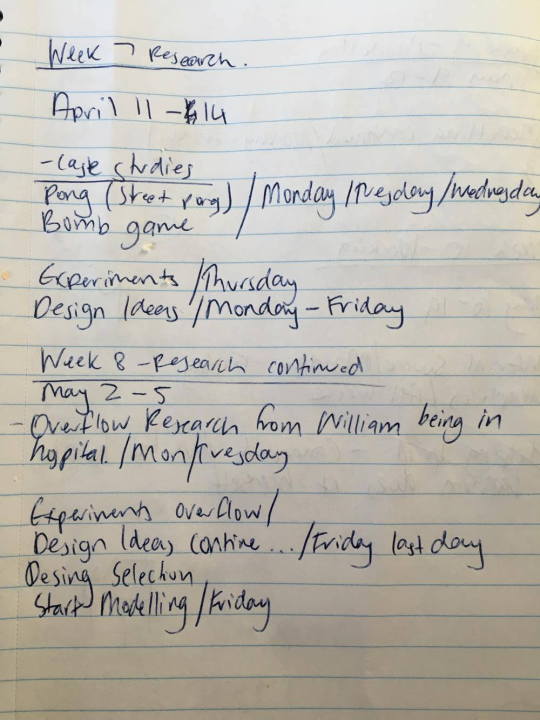 Week 7 Research.
April 11 - 14
- Case studies
Pong (Street pong) / Monday / Tuesday / Wednesday
Bomb game
Experiments / Thursday
Design Ideas / Monday - Friday
Week 8 - Research continued
May 2 - 5
- Overflow Research from William being in
hospital. / Mon / Tuesday
Experiments overflow /
Design Ideas contine ... / Friday last day
Desing Selection
Start Modelling / Friday